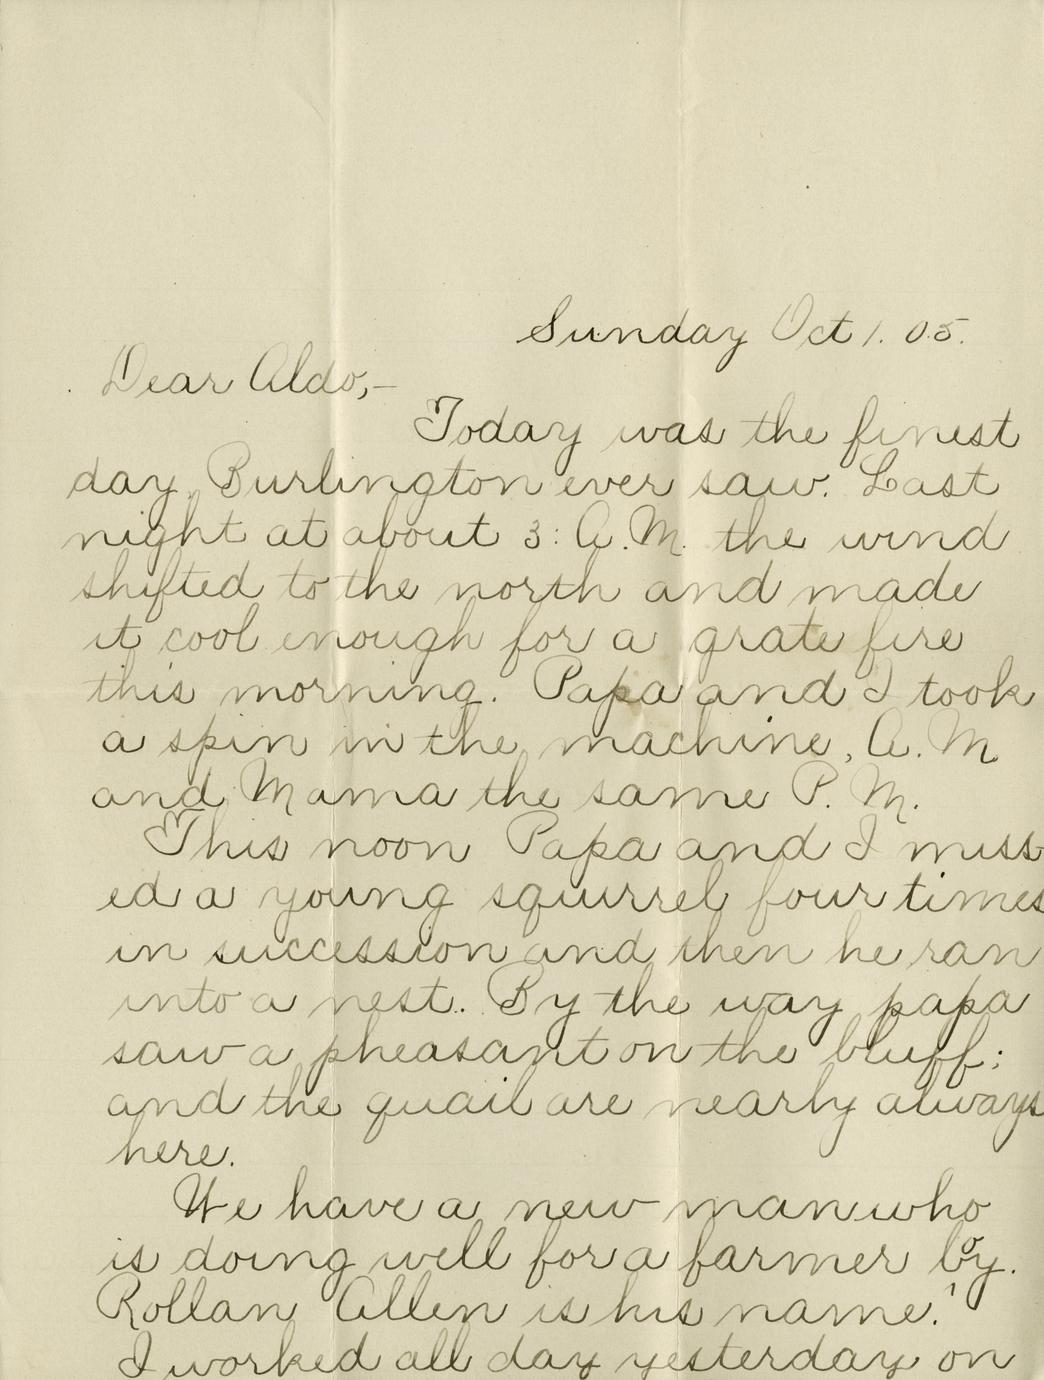 Sunday Oct 1. 05.
Dear Aldo,-
Today was the finest
day Burlington ever saw. Last
night at about 3: A.M. the wind
shifted to the north and made
it cool enough for a grate fire
this morning. Papa and I took
a spin in the machine, A.M
and Mama the same P.M.
This noon Papa and I miss
ed a young squirrel four times
in succession and then he ran
into a nest. By the way papa
saw a pheasant on the bluff;
and the quail are nearly always
here.
We have a new man who
is doing well for a farmer boy.
Rollan Allen is his name.
I worked all day yesterday on